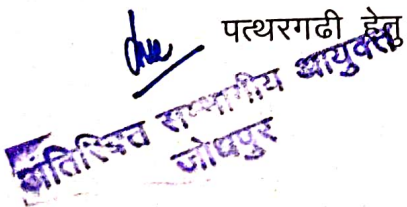 पत्थरगढी हेतु
अतिरिक्त सम्भागीय आयुक्त
जोधपुर